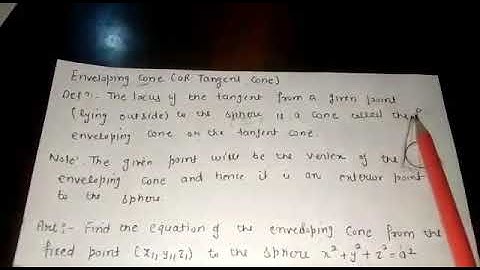 Enveloping Cone (OR Tangent Cone)
Defn:- The locus of the tangent from a given point
(lying outside) to the sphere is a cone called the
enveloping cone or the tangent cone.
Note: The given point will be the vertex of the
enveloping cone and hence it is an exterior point
to the sphere.
Art:- Find the equation of the enveloping cone from the
fixed point (x₁, y₁, z₁) to the sphere x²+y²+z²=a²